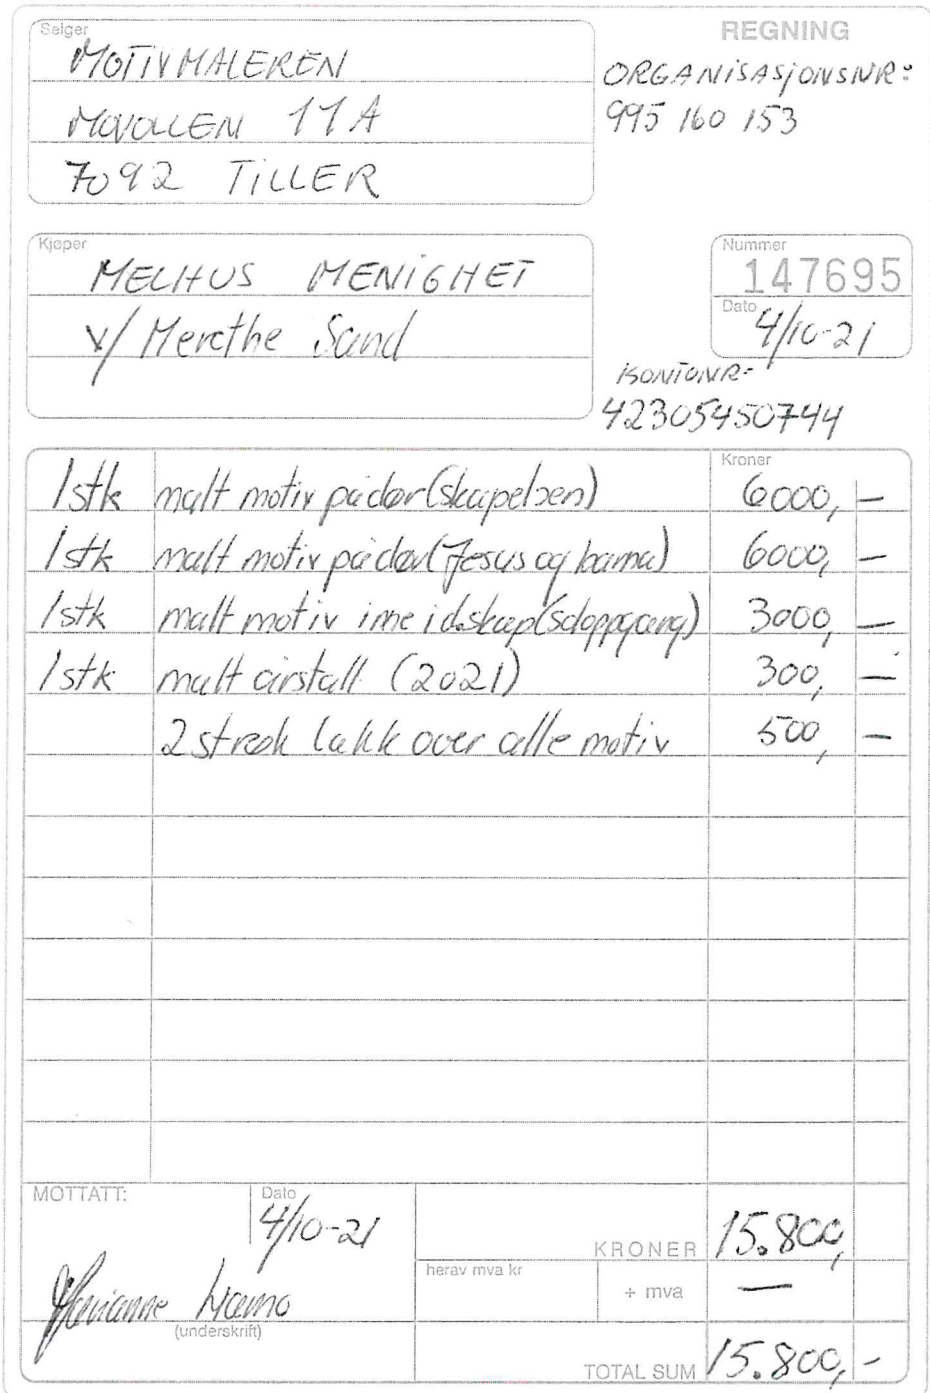 Selger
MOTIVMALEREN
MOVOLLEN 11A
7092 TILLER
REGNING
ORGANISASJONSNR:
995 160 153
Kjøper
MELHUS MENIGHET
v/ Merethe Sand
Nummer
147695
Dato
4/10-21
KONTONR:
42305450744
Kroner
1 stk malt motiv på dør (skapelsen) 6000,-
1 stk malt motiv på dør (Jesus og barna) 6000,-
1 stk malt motiv inne i d.skap (soloppgang) 3000,-
1 stk malt årstall (2021) 300,-
2 strøk lakk over alle motiv 500,-
MOTTATT:
Dato
4/10-21
KRONER 15.800,
herav mva kr
+ mva —
Marianne
(underskrift)
TOTAL SUM 15.800,-